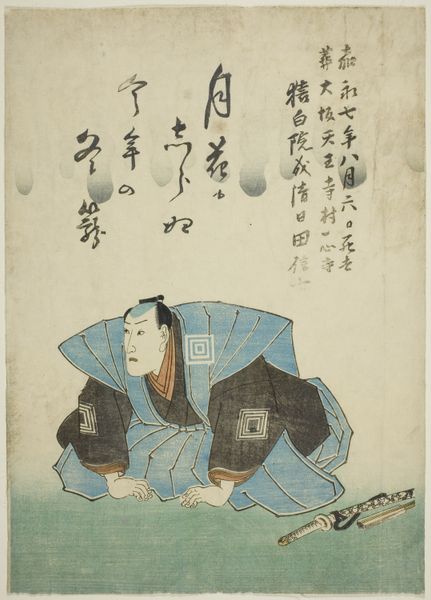 嘉永七年八月六日死去
葬大坂天王寺村一心寺
猿白院成清日田信士
月花
志らぬ
今年の
冬籠